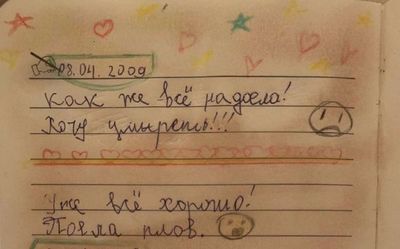 08.04.2009
как же всё надоело!
Хочу умыреть!!!
Уже всё хорошо!
Поела плов.